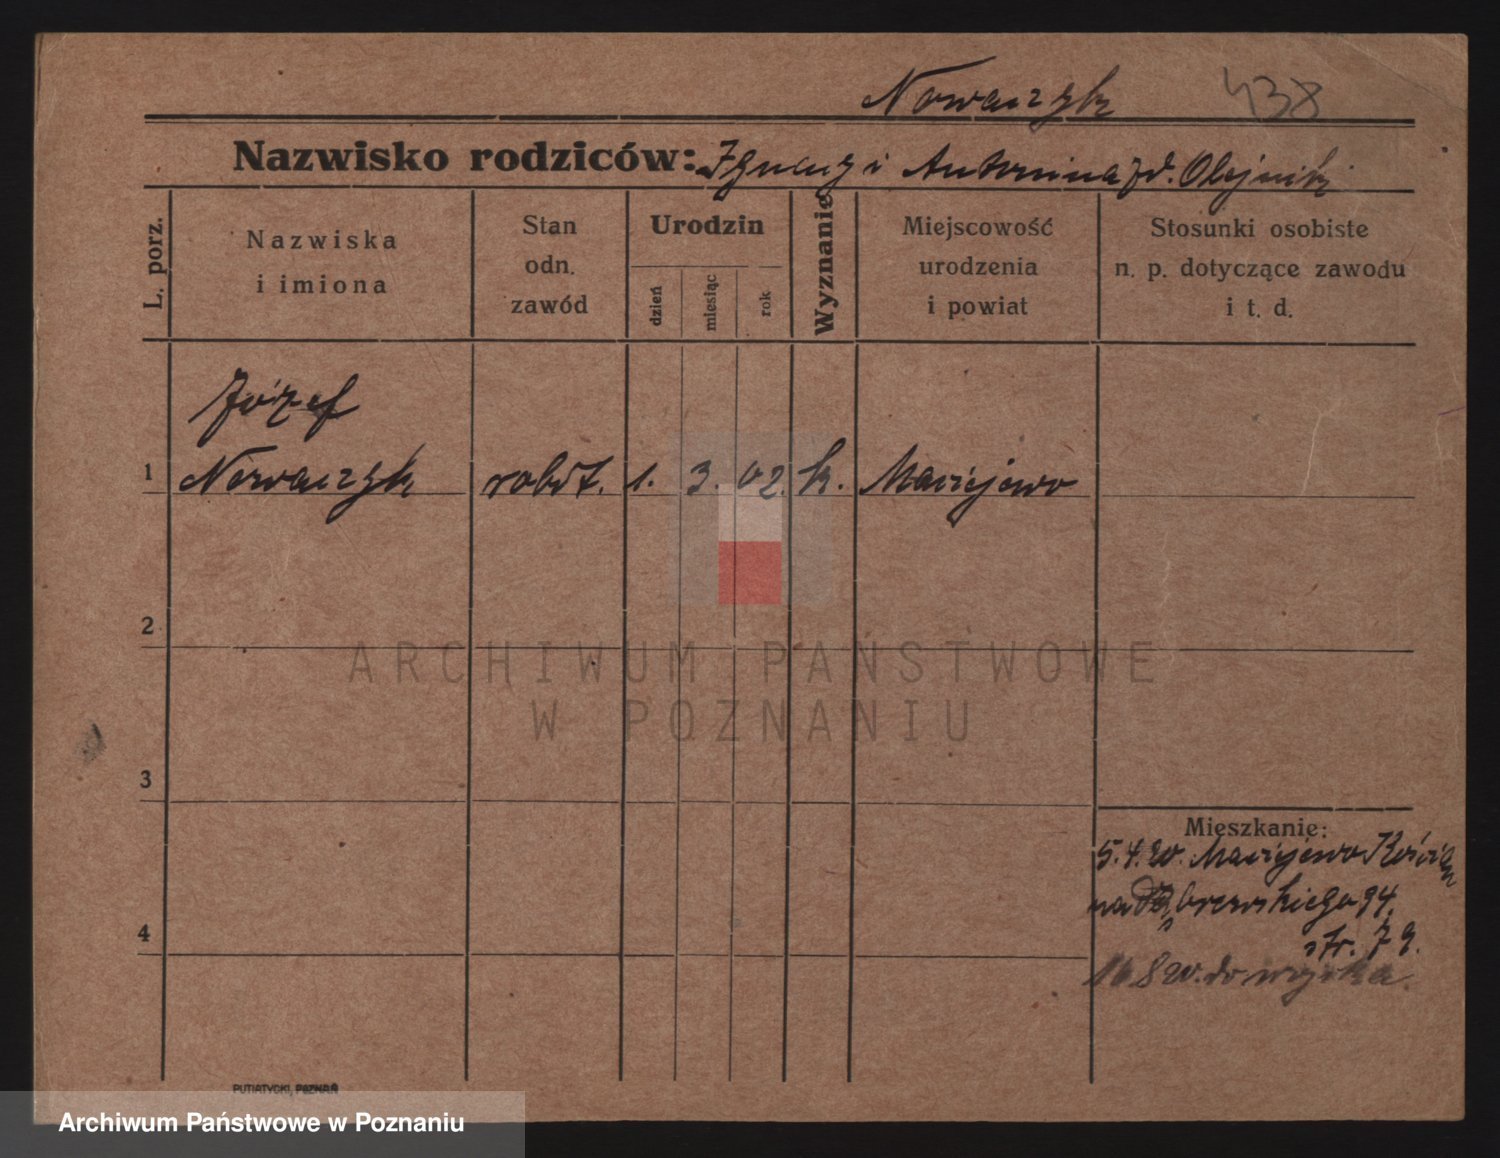 Nowaczyk 438
Nazwisko rodziców: Ignacy i Antonina zd. Olejnik
L. porz.
Nazwiska
i imiona
Stan
odn.
zawód
Urodzin
dzień
miesiąc
rok
Wyznanie
Miejscowość
urodzenia
i powiat
Stosunki osobiste
n. p. dotyczące zawodu
i t. d.
Józef
1 Nowaczyk robot. 1. 3. 02. k. Maciejewo
2
3
4
Mieszkanie:
5.4.20. Maciejewo
na 94.
str. 7
8 20. do wojska.
PUTIATYCKI, POZNAŃ
ARCHIWUM PAŃSTWOWE
W POZNANIU
Archiwum Państwowe w Poznaniu